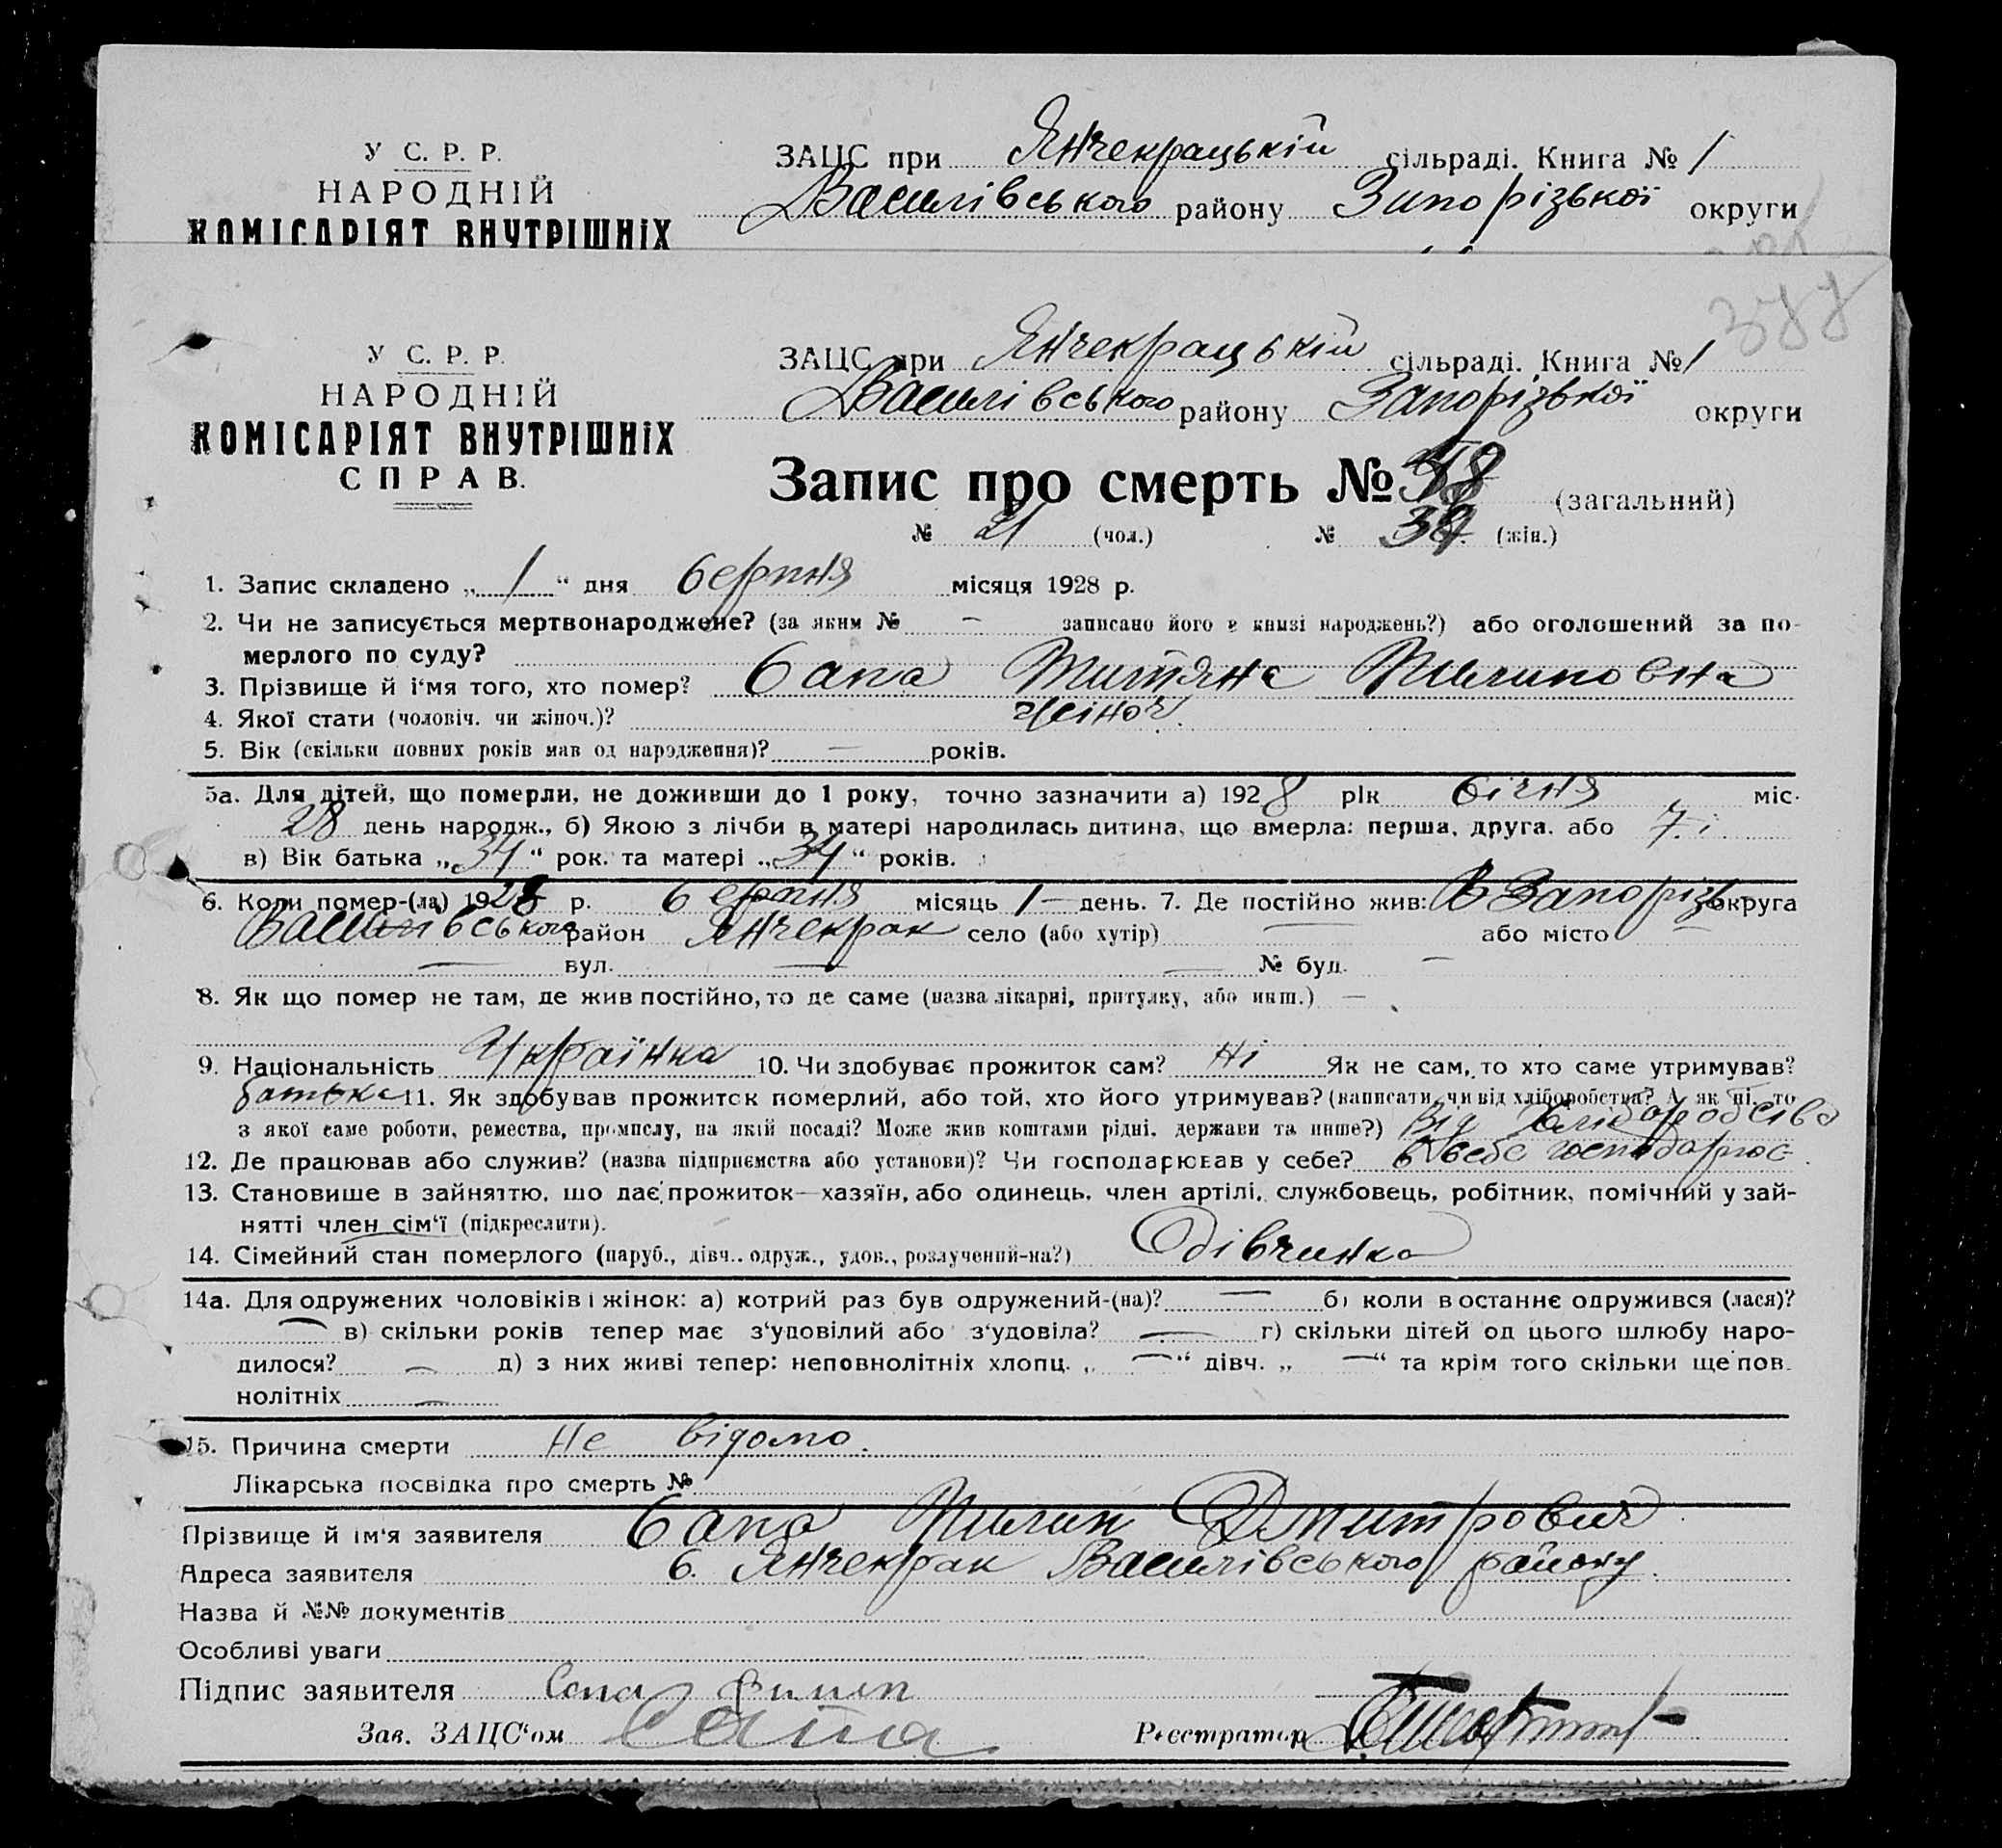 У С. Р. Р.
НАРОДНІЙ
КОМІСАРІЯТ ВНУТРІШНІХ
ЗАЦС при Янчекрацькій сільраді. Книга № 1
Василівського району Запорізької округи
377
У С. Р. Р.
НАРОДНІЙ
КОМІСАРІЯТ ВНУТРІШНІХ
СПРАВ.
ЗАЦС при Янчекрацькій сільраді. Книга № 1
Василівського району Запорізької округи
Запис про смерть № 58 (загальний)
№ 21 (чол.) № 37 (жін.)
1. Запис складено „ 1 “ дня серпня місяця 1928 р.
2. Чи не записується мертвонароджене? (за яким № — записано його в книзі народжень?) або оголошений за по-
мерлого по суду?
3. Прізвище й і'мя того, хто помер? Сапа Титяна Пилиповна
4. Якої стати (чоловіч. чи жіноч.)? жіноч.
5. Вік (скільки повних років мав од народження)? — років.
5а. Для дітей, що померли, не доживши до 1 року, точно зазначити а) 1928 рік січня міс.
28 день народж., б) Якою з лічби в матері народилась дитина, що вмерла: перша, друга. або 7.і
в) Вік батька „34“ рок. та матері „34“ років.
6. Коли помер-(ла) 1928 р. серпня місяць 1 — день. 7. Де постійно жив: В Запоріз округа
Василівського район Янчекрак село (або хутір) — або місто —
— вул. — — № буд. —
8. Як що помер не там, де жив постійно, то де саме (назва лікарні, притулку, або инш.) —
9. Національність Українка 10. Чи здобуває прожиток сам? ні Як не сам, то хто саме утримував?
батько 11. Як здобував прожиток померлий, або той, хто його утримував? (написати, чи від хліборобства? А як ні, то
з якої саме роботи, ремества, промислу, на якій посаді? Може жив коштами рідні, держави та инше?) Від Хліборобства
12. Де працював або служив? (назва підприємства або установи)? Чи господарював у себе? в себе господарює
13. Становище в зайняттю, що дає прожиток—хазяїн, або одинець, член артілі, службовець, робітник, помічний у зай-
нятті член сім'ї (підкреслити).
14. Сімейний стан померлого (паруб., дівч.. одруж., удов., розлучений-на?) Дівчинка
14а. Для одружених чоловіків і жінок: а) котрий раз був одружений-(на)? — б) коли в останнє одружився (лася)?
— в) скільки років тепер має з'удовілий або з'удовіла? — г) скільки дітей од цього шлюбу наро-
дилося? — д) з них живі тепер: неповнолітніх хлопц. „ — “ дівч. „ — “ та крім того скільки ще пов.
нолітніх —
15. Причина смерти Не відомо.
Лікарська посвідка про смерть №
Прізвище й ім'я заявителя Сапа Пилип Дмитрович
Адреса заявителя с. Янчекрак Василівського району.
Назва й №№ документів
Особливі уваги
Підпис заявителя Сапа Филип
Зав. ЗАЦС'ом
Реєстратор